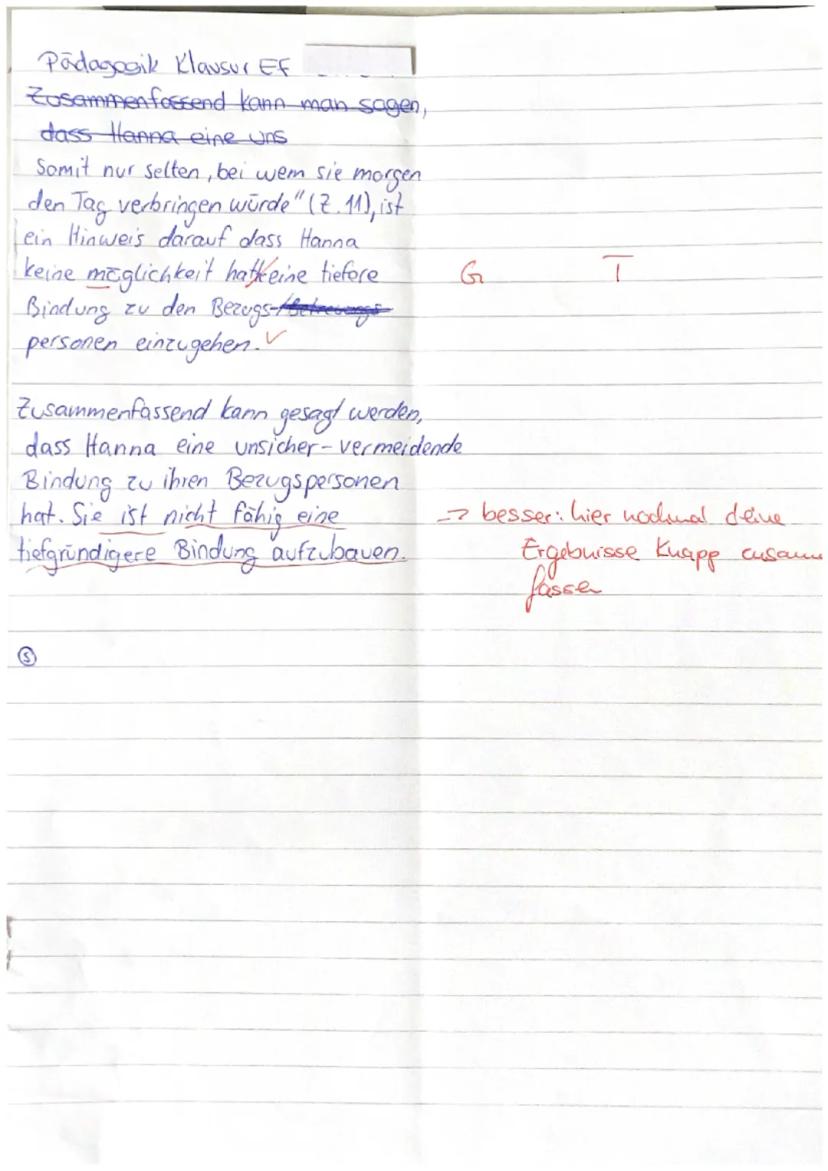 Pädagogik Klausur EF
Zusammenfassend kann man sagen,
dass Hanna eine uns
Somit nur selten, bei wem sie morgen
den Tag verbringen würde" (Z. 11), ist
ein Hinweis darauf dass Hanna
keine möglichkeit hat keine tiefere G T
Bindung zu den Bezugs-/Betreuungs
personen einzugehen. ✓
Zusammenfassend kann gesagt werden,
dass Hanna eine unsicher-vermeidende
Bindung zu ihren Bezugspersonen
hat. Sie ist nicht fähig eine → besser: hier nochmal deine
tiefgründigere Bindung aufzubauen. Ergebnisse knapp zusamm
fassen
⑤